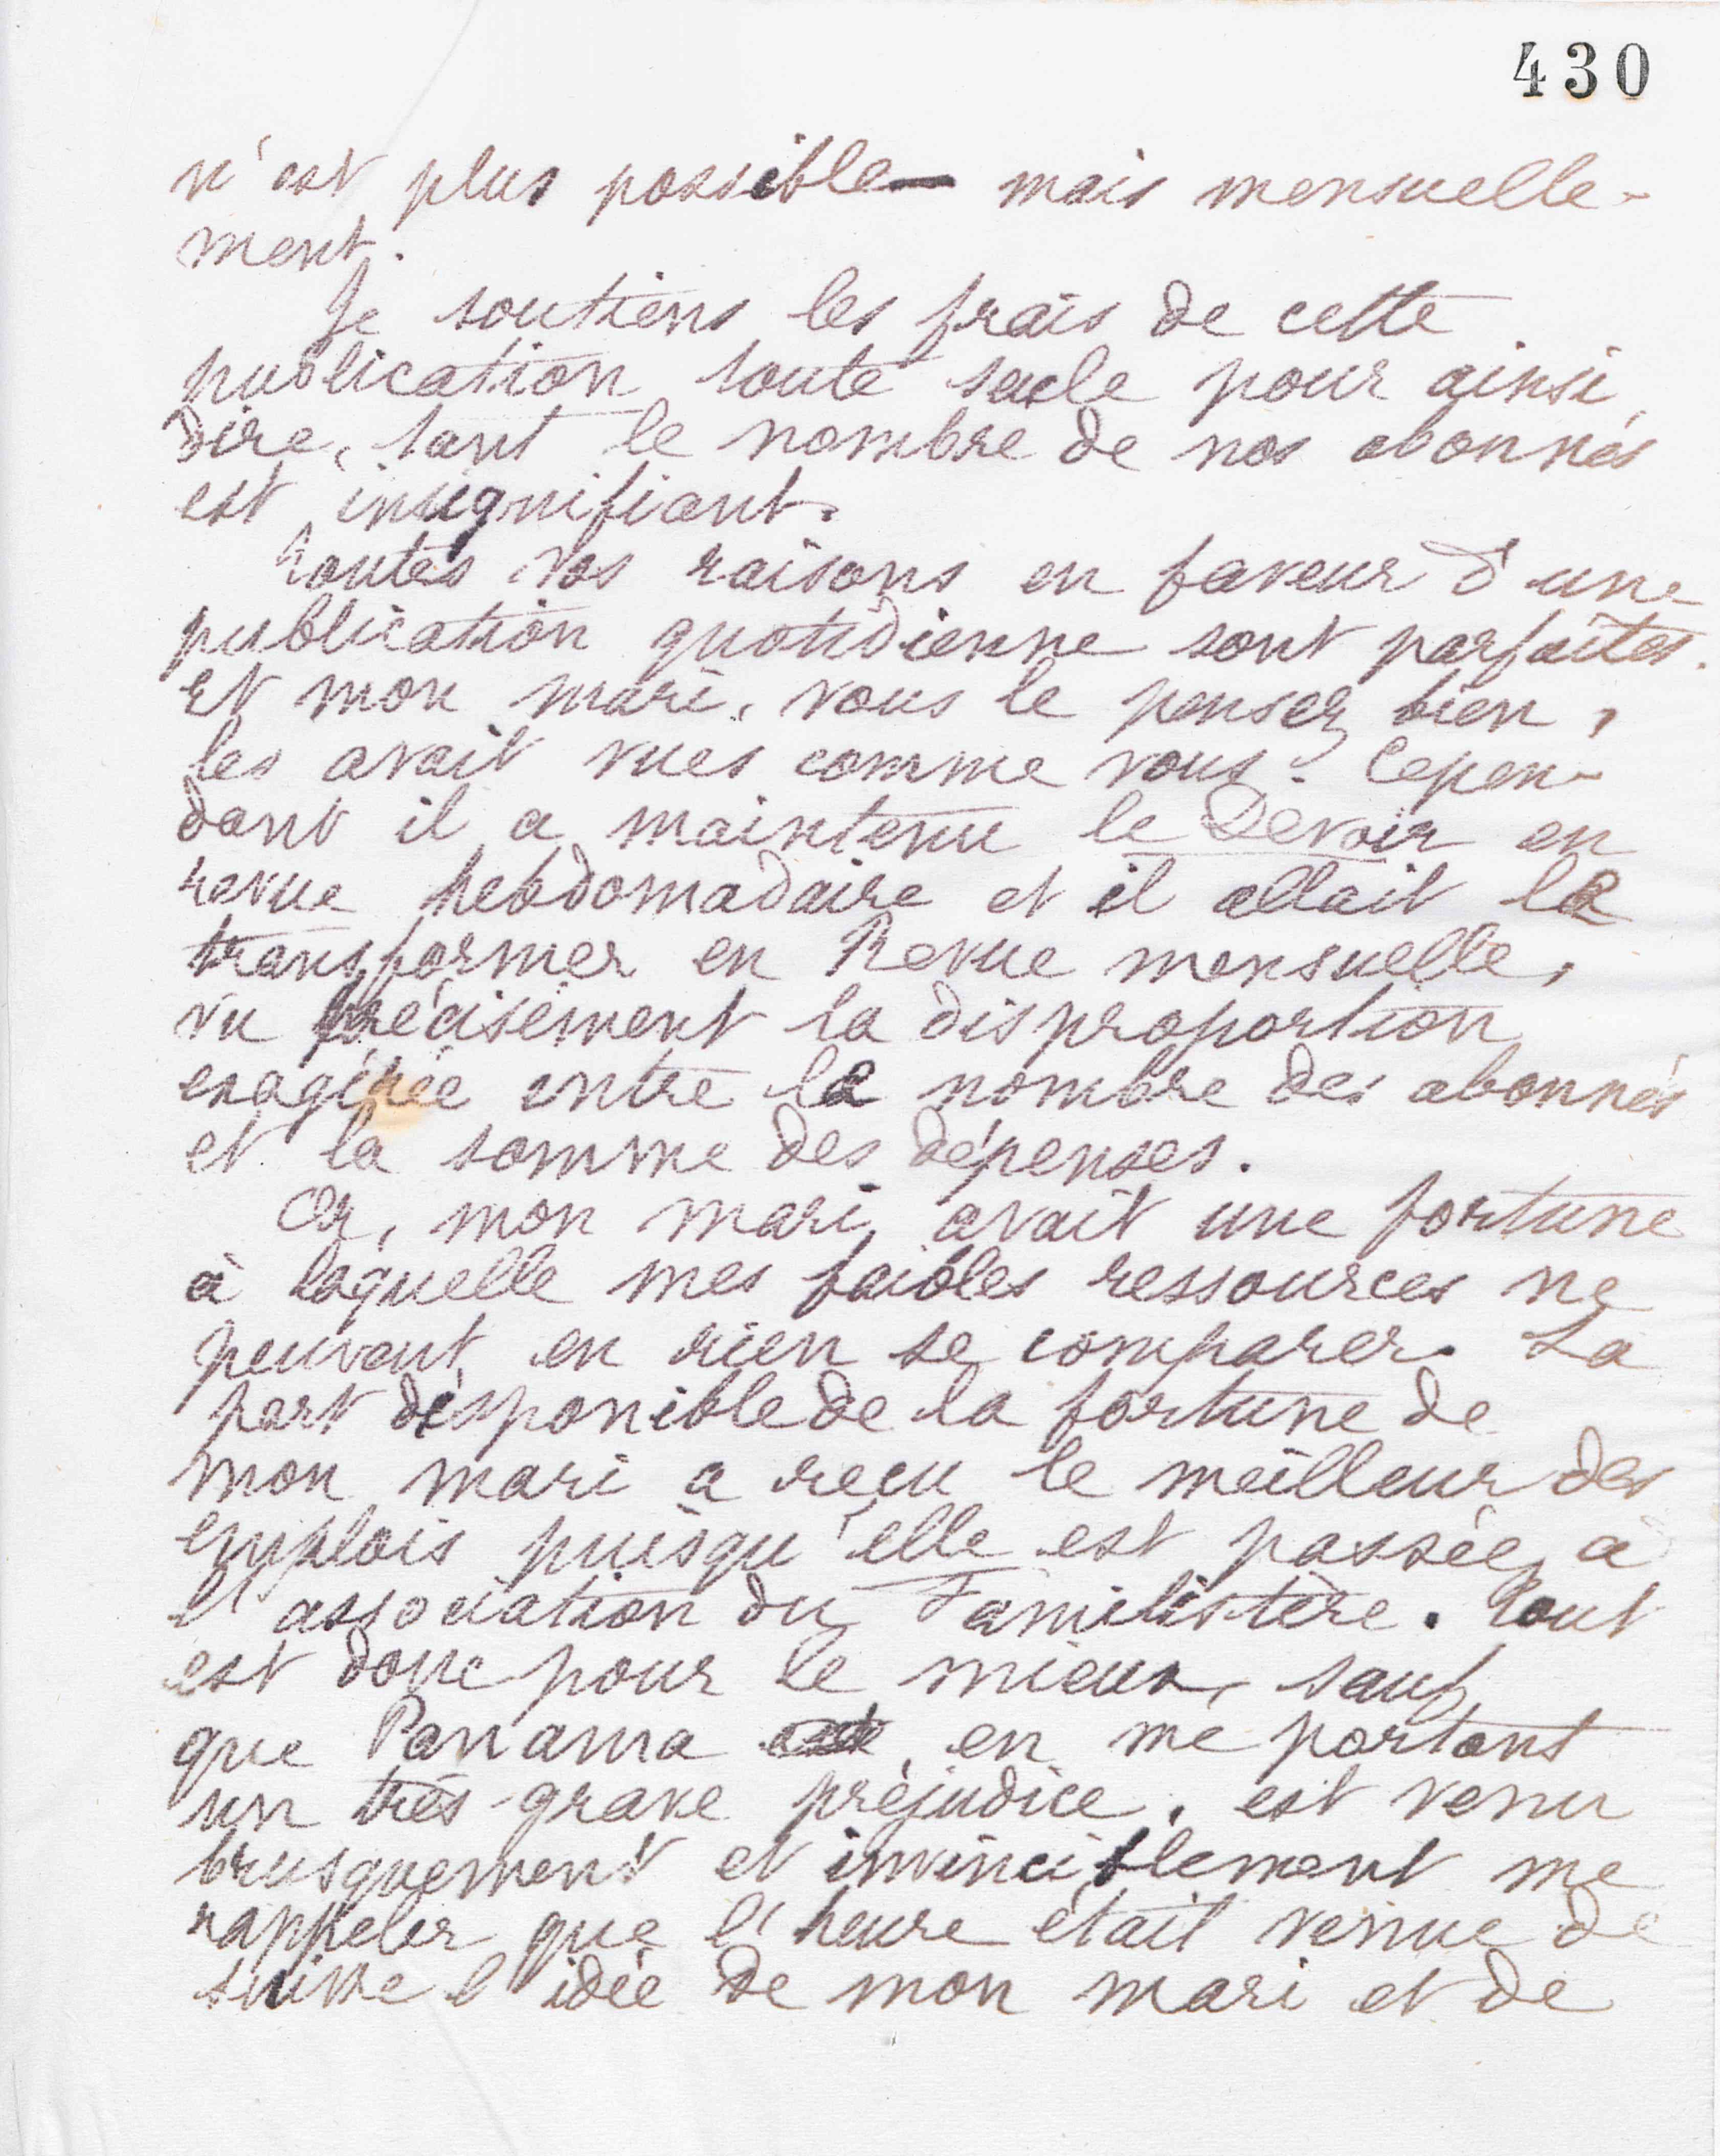 430
n'est plus possible — mais mensuelle-
ment.
Je soutiens les frais de cette
publication toute seule pour ainsi
dire, tant le nombre de nos abonnés
est insignifiant.
Toutes vos raisons en faveur d'une
publication quotidienne sont parfaites.
Et mon mari, vous le pensez bien,
les avait vues comme vous. Cepen-
dant il a maintenu le Devoir en
revue hebdomadaire et il allait le
transformer en Revue mensuelle,
vu précisément la disproportion
exagérée entre le nombre des abonnés
et la somme des dépenses.
Or, mon mari avait une fortune
à laquelle mes faibles ressources ne
peuvent en rien se comparer. La
part disponible de la fortune de
mon mari a reçu le meilleur des
emplois puisqu'elle est passée à
l'association du Familistère. Tout
est donc pour le mieux, sauf
que Panama en me portant
un très grave préjudice, est venu
brusquement et invinciblement me
rappeler que l'heure était venue de
suivre l'idée de mon mari et de